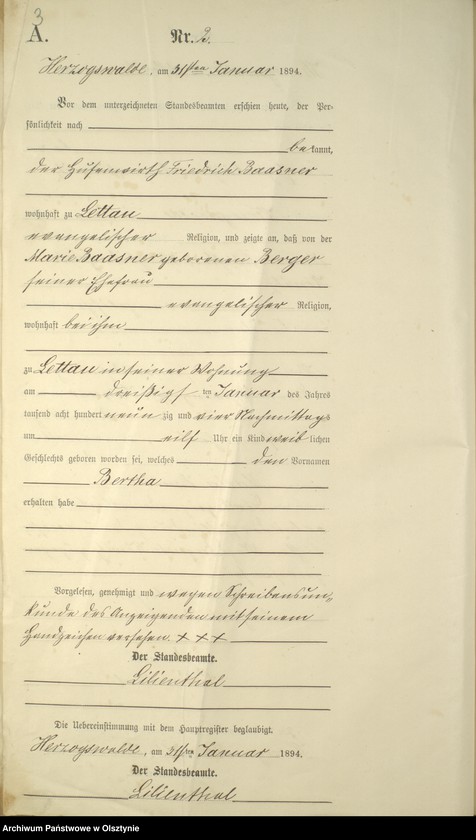 3
A.
Nr. 2.
Herzogswalde, am 31sten Januar 1894.
Vor dem unterzeichneten Standesbeamten erschien heute, der Per-
sönlichkeit nach
bekannt,
der Hufenwirth Friedrich Baasner
wohnhaft zu Lettau
evangelischer Religion, und zeigte an, daß von der
Marie Baasner geborenen Berger
seiner Ehefrau
evangelischer Religion,
wohnhaft bei ihm
zu Lettau in seiner Wohnung
am dreißigsten Januar des Jahres
tausend acht hundert neunzig und vier Nachmittags
um eilf Uhr ein Kind weiblichen
Geschlechts geboren worden sei, welches den Vornamen
Bertha
erhalten habe
Vorgelesen, genehmigt und wegen Schreibensun-
kunde des Anzeigenden mit seinem
Handzeichen versehen. + + +
Der Standesbeamte.
Lilienthal
Die Uebereinstimmung mit dem Hauptregister beglaubigt.
Herzogswalde, am 31sten Januar 1894.
Der Standesbeamte.
Lilienthal
Archiwum Państwowe w Olsztynie